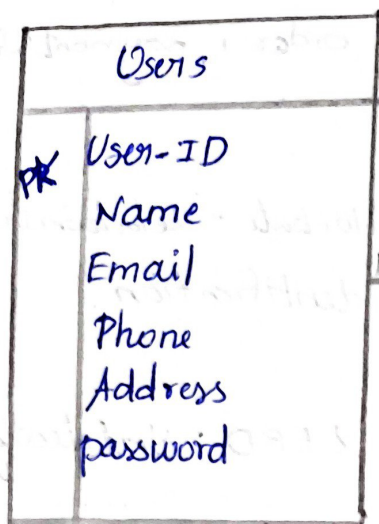 Users
PK User-ID
Name
Email
Phone
Address
password